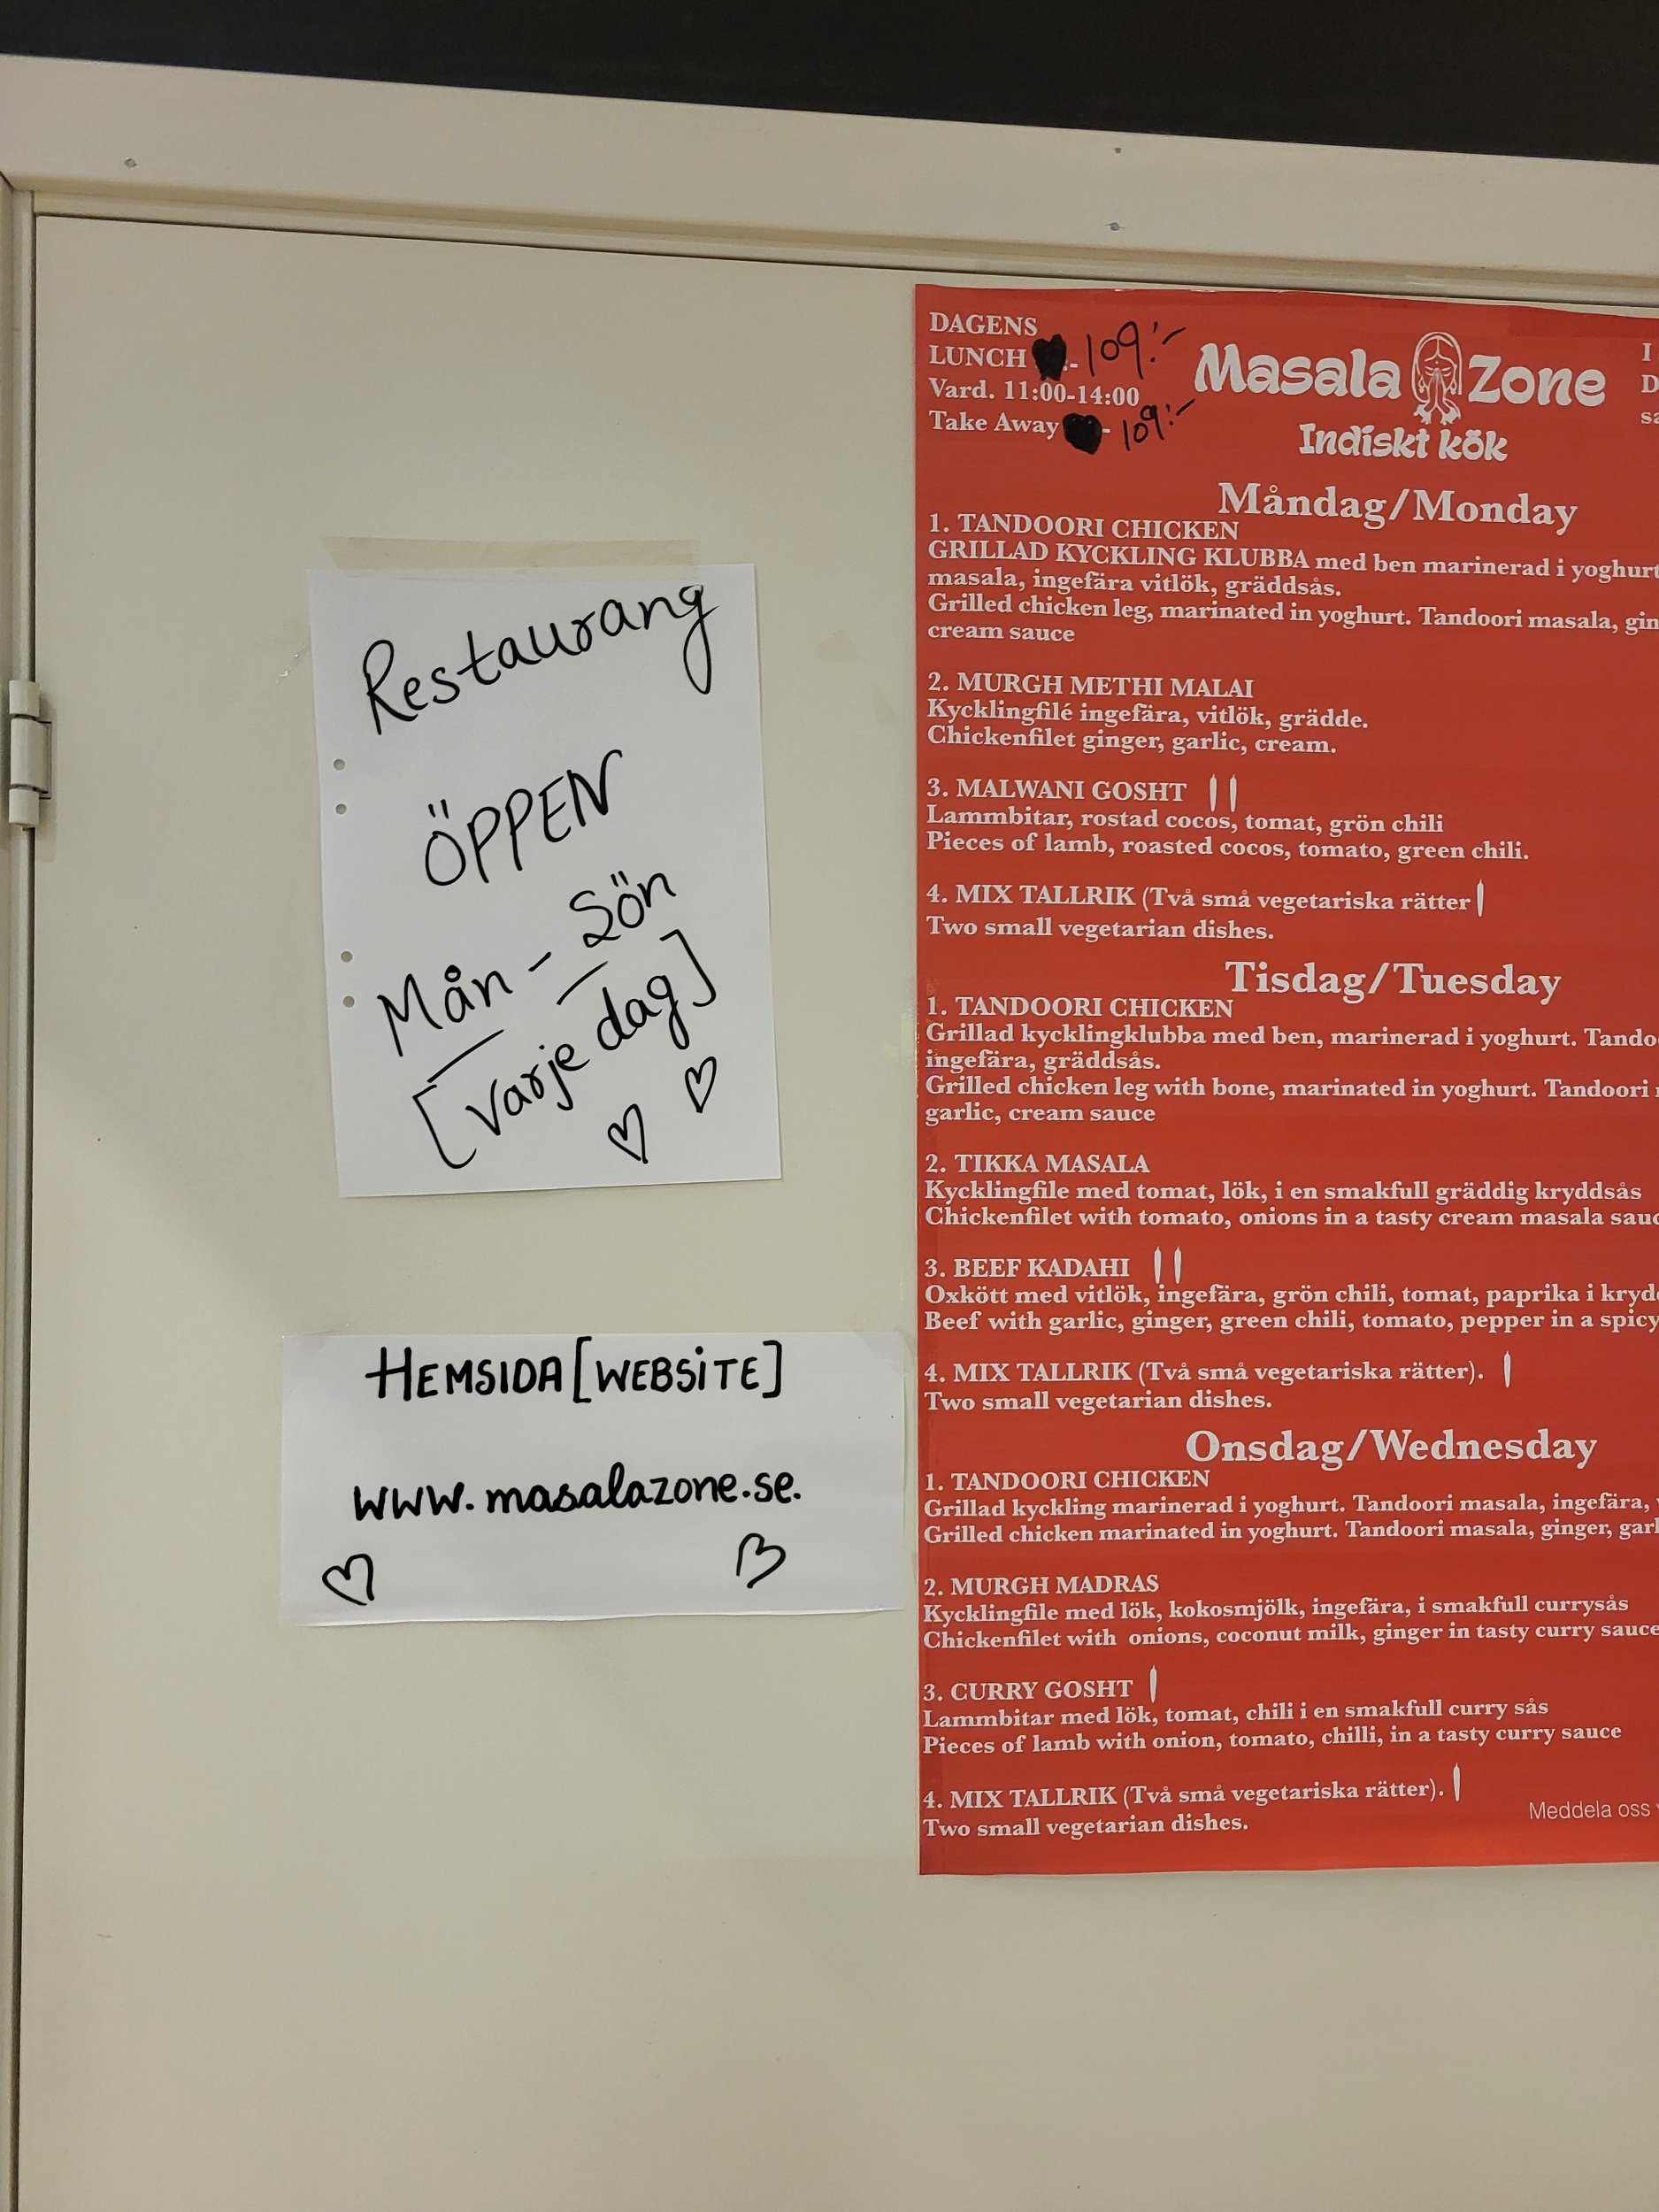 Restaurang
ÖPPEN
Mån - Sön
[varje dag]
HEMSIDA [WEBSITE]
www.masalazone.se.
DAGENS
LUNCH .- 109:-
Vard. 11:00-14:00
Take Away - 109:-
Masala Zone
Indiskt kök
I
D
sa
Måndag/Monday
1. TANDOORI CHICKEN
GRILLAD KYCKLING KLUBBA med ben marinerad i yoghurt
masala, ingefära vitlök, gräddsås.
Grilled chicken leg, marinated in yoghurt. Tandoori masala, gin
cream sauce
2. MURGH METHI MALAI
Kycklingfilé ingefära, vitlök, grädde.
Chickenfilet ginger, garlic, cream.
3. MALWANI GOSHT
Lammbitar, rostad cocos, tomat, grön chili
Pieces of lamb, roasted cocos, tomato, green chili.
4. MIX TALLRIK (Två små vegetariska rätter
Two small vegetarian dishes.
Tisdag/Tuesday
1. TANDOORI CHICKEN
Grillad kycklingklubba med ben, marinerad i yoghurt. Tando
ingefära, gräddsås.
Grilled chicken leg with bone, marinated in yoghurt. Tandoori
garlic, cream sauce
2. TIKKA MASALA
Kycklingfile med tomat, lök, i en smakfull gräddig kryddsås
Chickenfilet with tomato, onions in a tasty cream masala sauc
3. BEEF KADAHI
Oxkött med vitlök, ingefära, grön chili, tomat, paprika i kryd
Beef with garlic, ginger, green chili, tomato, pepper in a spicy
4. MIX TALLRIK (Två små vegetariska rätter).
Two small vegetarian dishes.
Onsdag/Wednesday
1. TANDOORI CHICKEN
Grillad kyckling marinerad i yoghurt. Tandoori masala, ingefära,
Grilled chicken marinated in yoghurt. Tandoori masala, ginger, garl
2. MURGH MADRAS
Kycklingfile med lök, kokosmjölk, ingefära, i smakfull currysås
Chickenfilet with onions, coconut milk, ginger in tasty curry sauce
3. CURRY GOSHT
Lammbitar med lök, tomat, chili i en smakfull curry sås
Pieces of lamb with onion, tomato, chilli, in a tasty curry sauce
4. MIX TALLRIK (Två små vegetariska rätter).
Two small vegetarian dishes.
Meddela oss